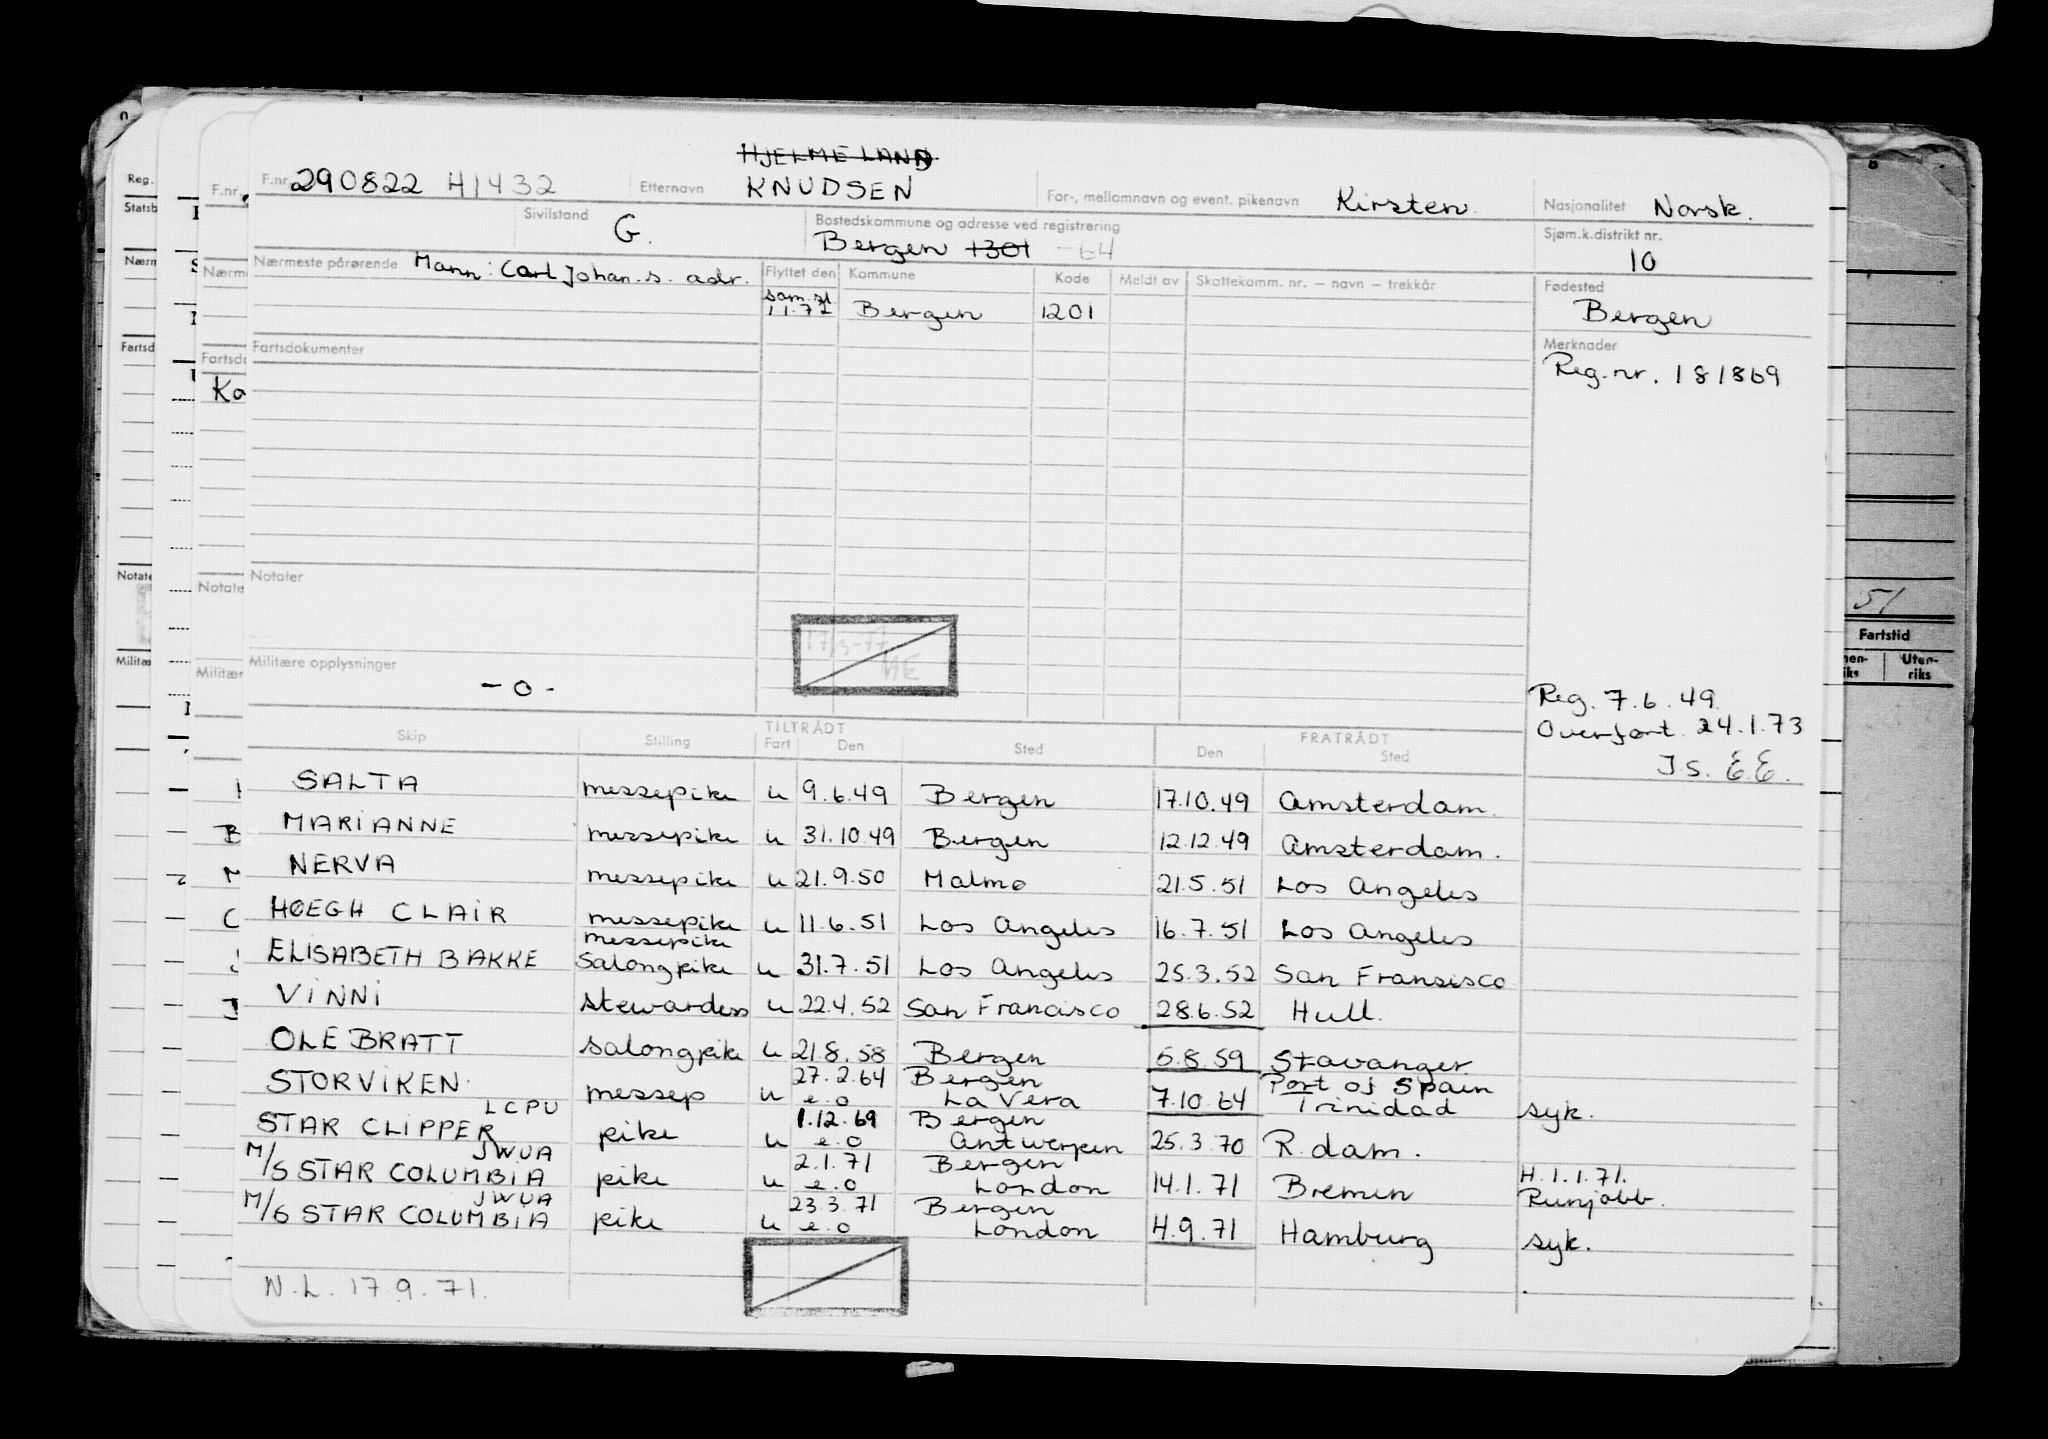 HJELMELAND
F.nr. 290822 41432 Etternavn KNUDSEN For-, mellomnavn og event. pikenavn Kirsten Nasjonalitet Norsk.
Sivilstand G. Bostedskommune og adresse ved registrering Bergen 1301 -64 Sjøm.k.distrikt nr. 10
Nærmeste pårørende Mann: Carl Johan. s. adr. Flyttet den Kommune Kode Meldt av Skattekomm. nr. — navn — trekkår Fødested
sam. st
1.1.72 Bergen 1201 Bergen
Fartsdokumenter Merknader
Reg.nr. 181869
Notater
17/3-77
ME
Militære opplysninger
-o-
Reg. 7.6.49.
Overført. 24.1.73
J.S. E.E.
TILTRÅDT FRATRÅDT
Skip Stilling Fart Den Sted Den Sted
SALTA messepike u 9.6.49 Bergen 17.10.49 Amsterdam.
MARIANNE messepike u 31.10.49 Bergen 12.12.49 Amsterdam.
NERVA messepike u 21.9.50 Malmo 21.5.51 Los Angeles
HØEGH CLAIR messepike u 11.6.51 Los Angeles 16.7.51 Los Angeles
messepike
ELISABETH BAKKE Salongpike u 31.7.51 Los Angeles 25.3.52 San Fransisco
VINNI stewardess u 22.4.52 San Francisco 28.6.52 Hull.
OLE BRATT salongpike u 21.8.58 Bergen 5.8.59 Stavanger
27.2.64 Bergen Port of Spain
STORVIKEN messep u e.o La Vera 7.10.64 Trinidad syk.
LCPU 1.12.69 Bergen
STAR CLIPPER pike u e.o Antwerpen 25.3.70 R.dam.
JWUA 2.1.71 Bergen H.1.1.71.
M/S STAR COLUMBIA pike u e.o London 14.1.71 Bremen Runjobb.
JWUA 23.3.71 Bergen
M/S STAR COLUMBIA pike u e.o London 4.9.71 Hamburg syk.
N.L. 17.9.71.
Reg.
Statsb
Nærm
Fartsd
Notate
Militæ
F.nr.
Nærme
Fartsdo
Ka
Notate
Militær
51
Fartstid
Uten-
riks